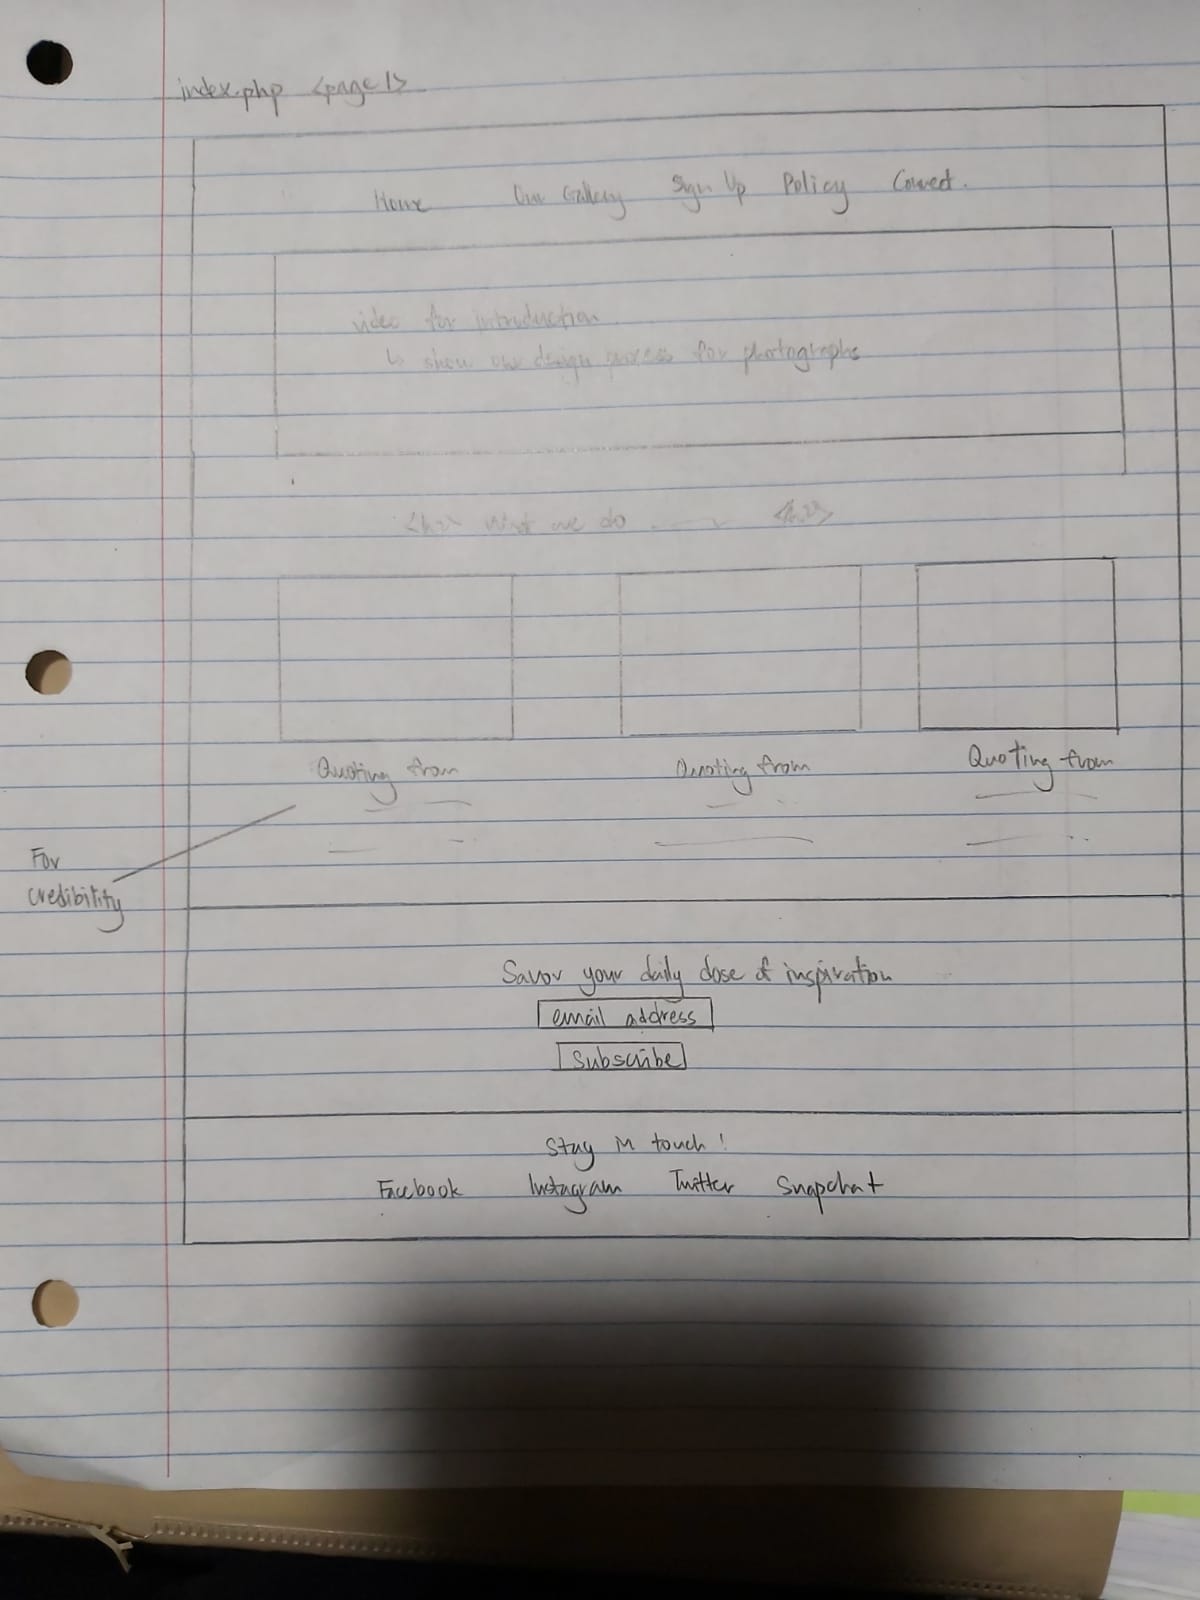 index.php <page 1>
Home Our Gallery Sign Up Policy Connect.
video for introduction
↳ show our design process for photographs
<h2> What we do <h2>
Quoting from Quoting from Quoting from
For
credibility
Savor your daily dose of inspiration
email address
Subscribe
Stay in touch!
Facebook Instagram Twitter Snapchat